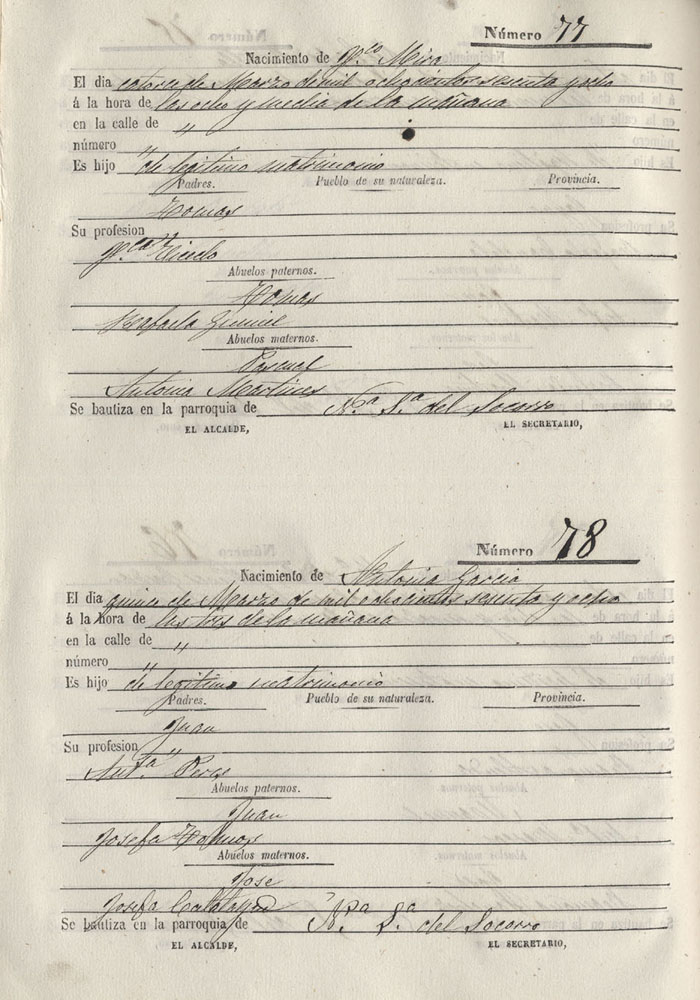 Número 77
Nacimiento de Fco Mira
El dia catorce de Marzo de mil ochocientos sesenta y ocho
á la hora de las ocho y media de la mañana
en la calle de "
número "
Es hijo de legitimo matrimonio
Padres. Pueblo de su naturaleza. Provincia.
Tomas
Su profesion "
Fca
Abuelos paternos.
Tomas
Rafaela
Abuelos maternos.
Pascual
Antonia Martines
Se bautiza en la parroquia de Na Sa del Socorro
EL ALCALDE, EL SECRETARIO,
Número 78
Nacimiento de Antonia Garcia
El dia quince de Marzo de mil ochocientos sesenta y ocho
á la hora de las tres de la mañana
en la calle de "
número "
Es hijo de legitimo matrimonio
Padres. Pueblo de su naturaleza. Provincia.
Juan
Su profesion "
Anta Peres
Abuelos paternos.
Juan
Josefa Tomas
Abuelos maternos.
Jose
Josefa Calatayud
Se bautiza en la parroquia de Na Sa del Socorro
EL ALCALDE, EL SECRETARIO,